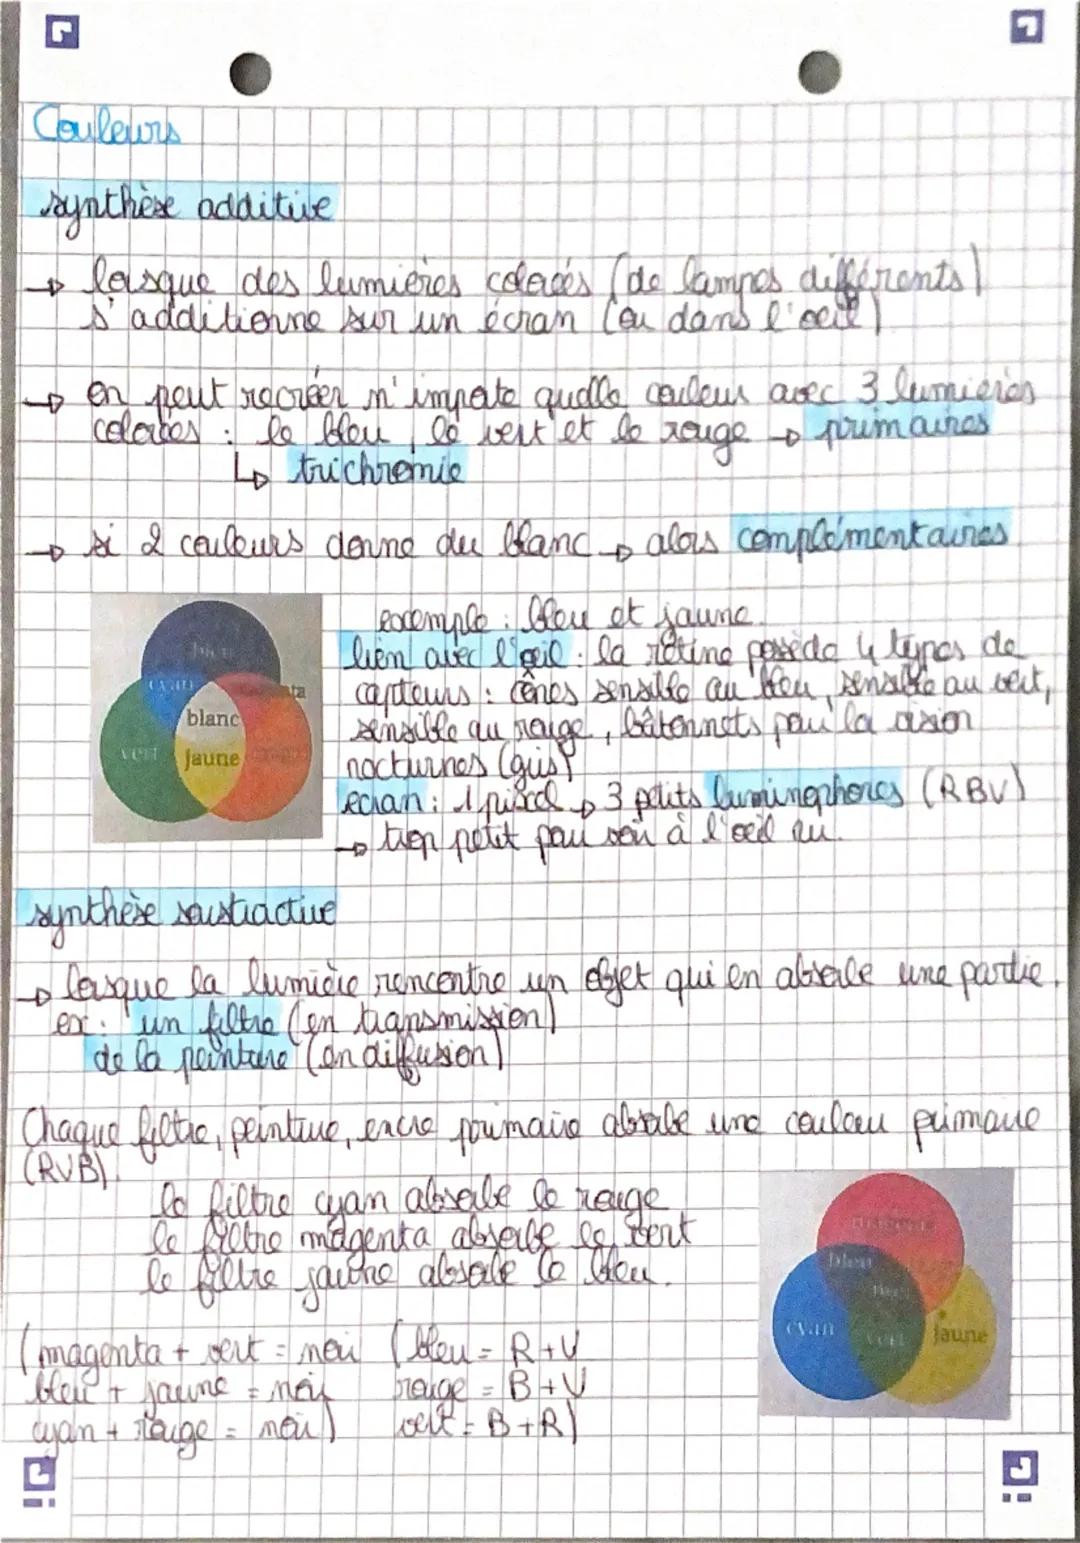 Couleurs
synthèse additive
→ lorsque des lumières colorés (de lampes différents)
s'additionne sur un écran (ou dans l'oeil)
→ on peut recréer n'importe quelle couleur avec 3 lumières
colorées : le bleu, le vert et le rouge → primaires
↳ trichromie
→ si 2 couleurs donne du blanc → alors complémentaires
exemple : bleu et jaune
lien avec l'oeil : la rétine possède 4 types de
capteurs : cônes sensible au bleu, sensible au vert,
sensible au rouge, bâtonnets pour la vision
nocturnes (gris)
écran : 1 pixel → 3 petits luminophores (RBV)
→ trop petit pour voir à l'oeil nu.
bleu
cyan
magenta
blanc
vert
Jaune
rouge
synthèse soustractive
→ lorsque la lumière rencontre un objet qui en absorbe une partie.
ex : un filtre (en transmission)
de la peinture (en diffusion)
Chaque filtre, peinture, encre primaire absorbe une couleur primaire
(RVB).
le filtre cyan absorbe le rouge
le filtre magenta absorbe le vert
le filtre jaune absorbe le bleu.
magenta
bleu
noir
cyan
vert
Jaune
(magenta + vert = noir
bleu + jaune = noir
cyan + rouge = noir)
(bleu = R+V
rouge = B+V
vert = B+R)